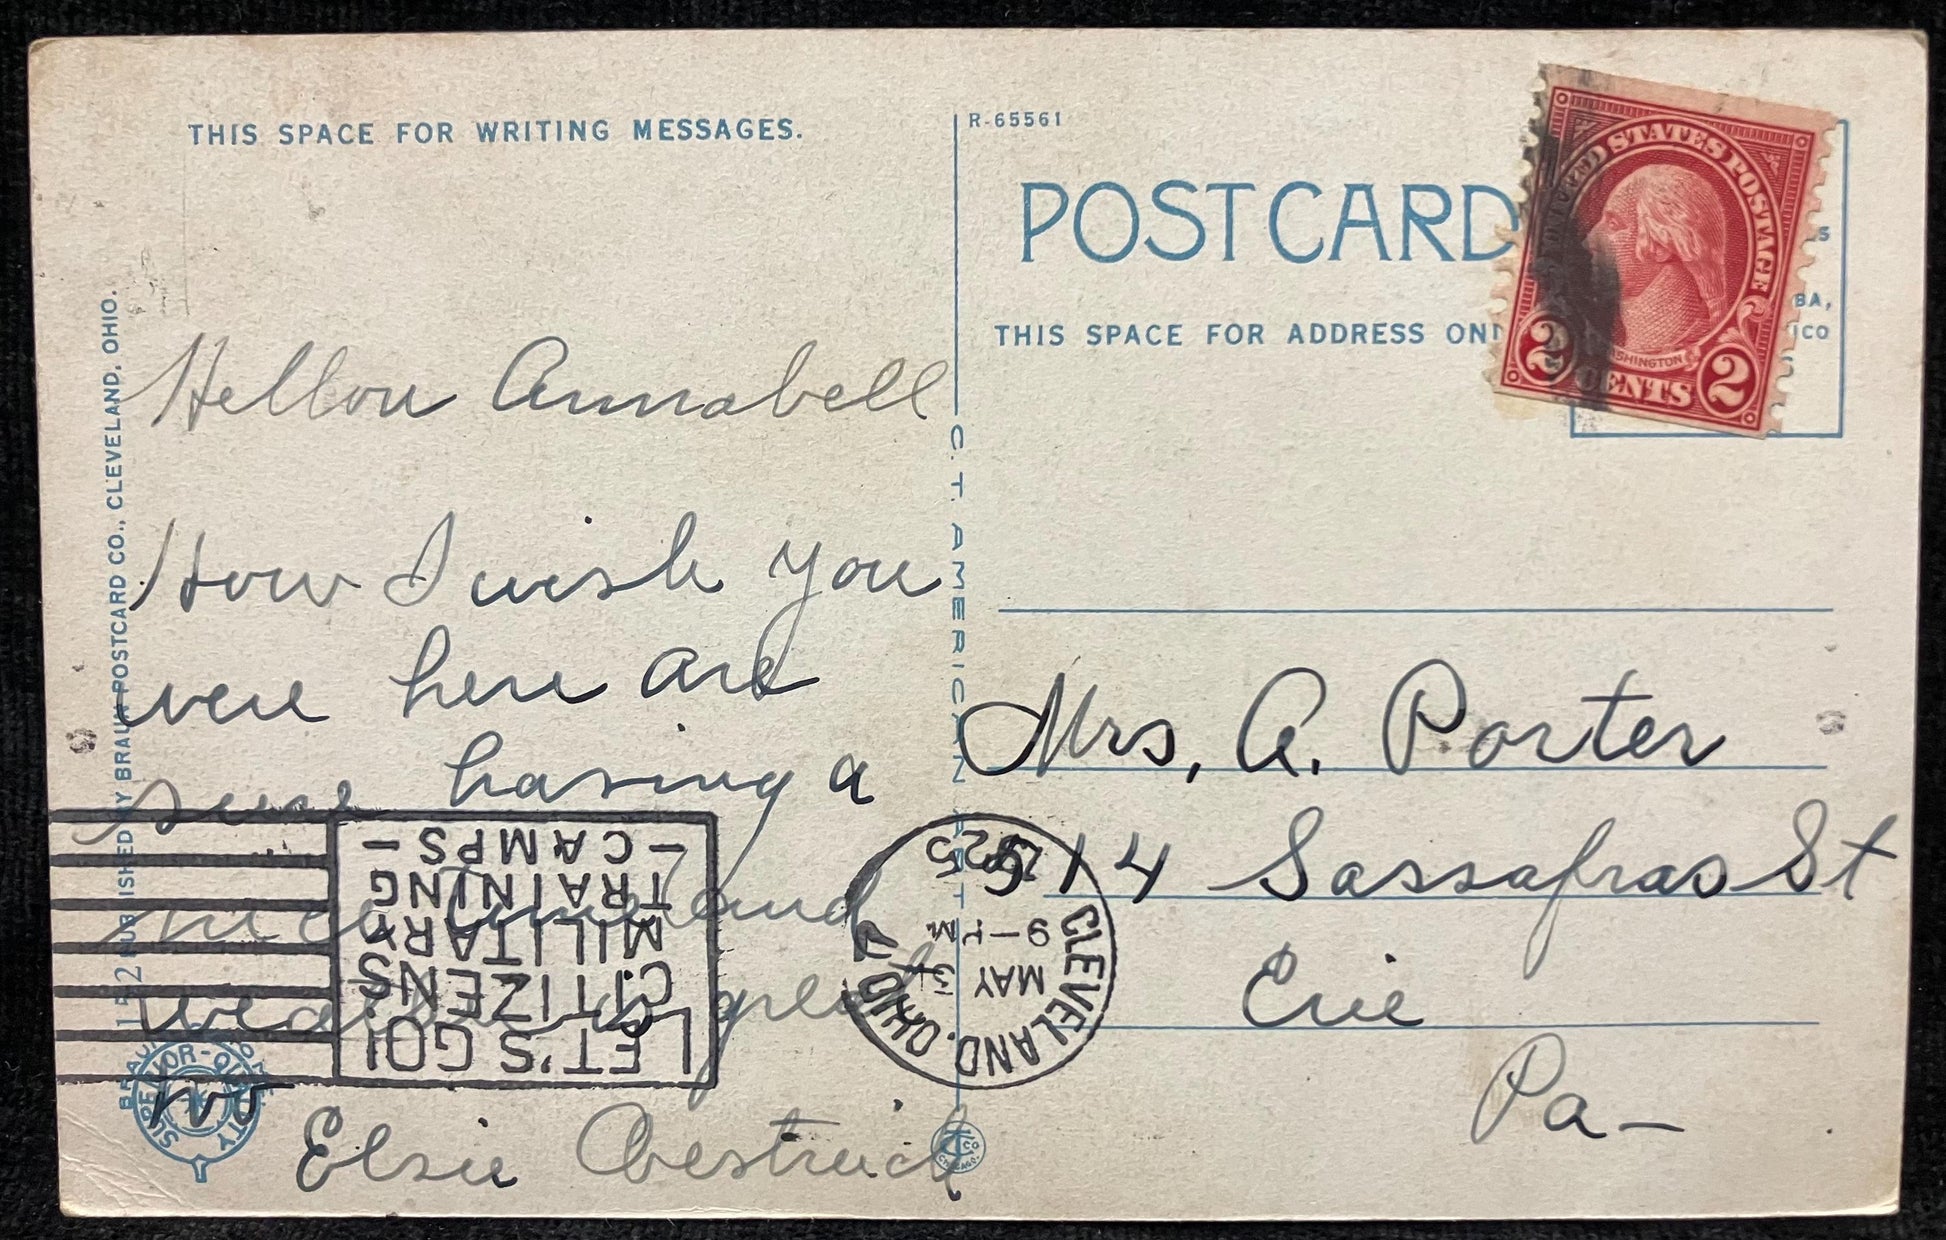 THIS SPACE FOR WRITING MESSAGES.
Hellow Annabell
How I wish you
were here are
sure having a
nice time and
weather is great
Elsie Oestreich
152 PUBLISHED BY BRAUN POSTCARD CO., CLEVELAND, OHIO.
SUPERIOR-QUALITY
C. T. AMERICAN ART
R-65561
POST CARD
THIS SPACE FOR ADDRESS ONL
UNITED STATES POSTAGE
WASHINGTON
2 CENTS 2
S
BA,
ICO
Mrs. A. Porter
614 Sassafras St
Erie
Pa-
LET'S GO!
CITIZENS
MILITARY
TRAINING
-CAMPS-
CLEVELAND, OHIO
MAY 31
9-PM
CT CO
CHICAGO.